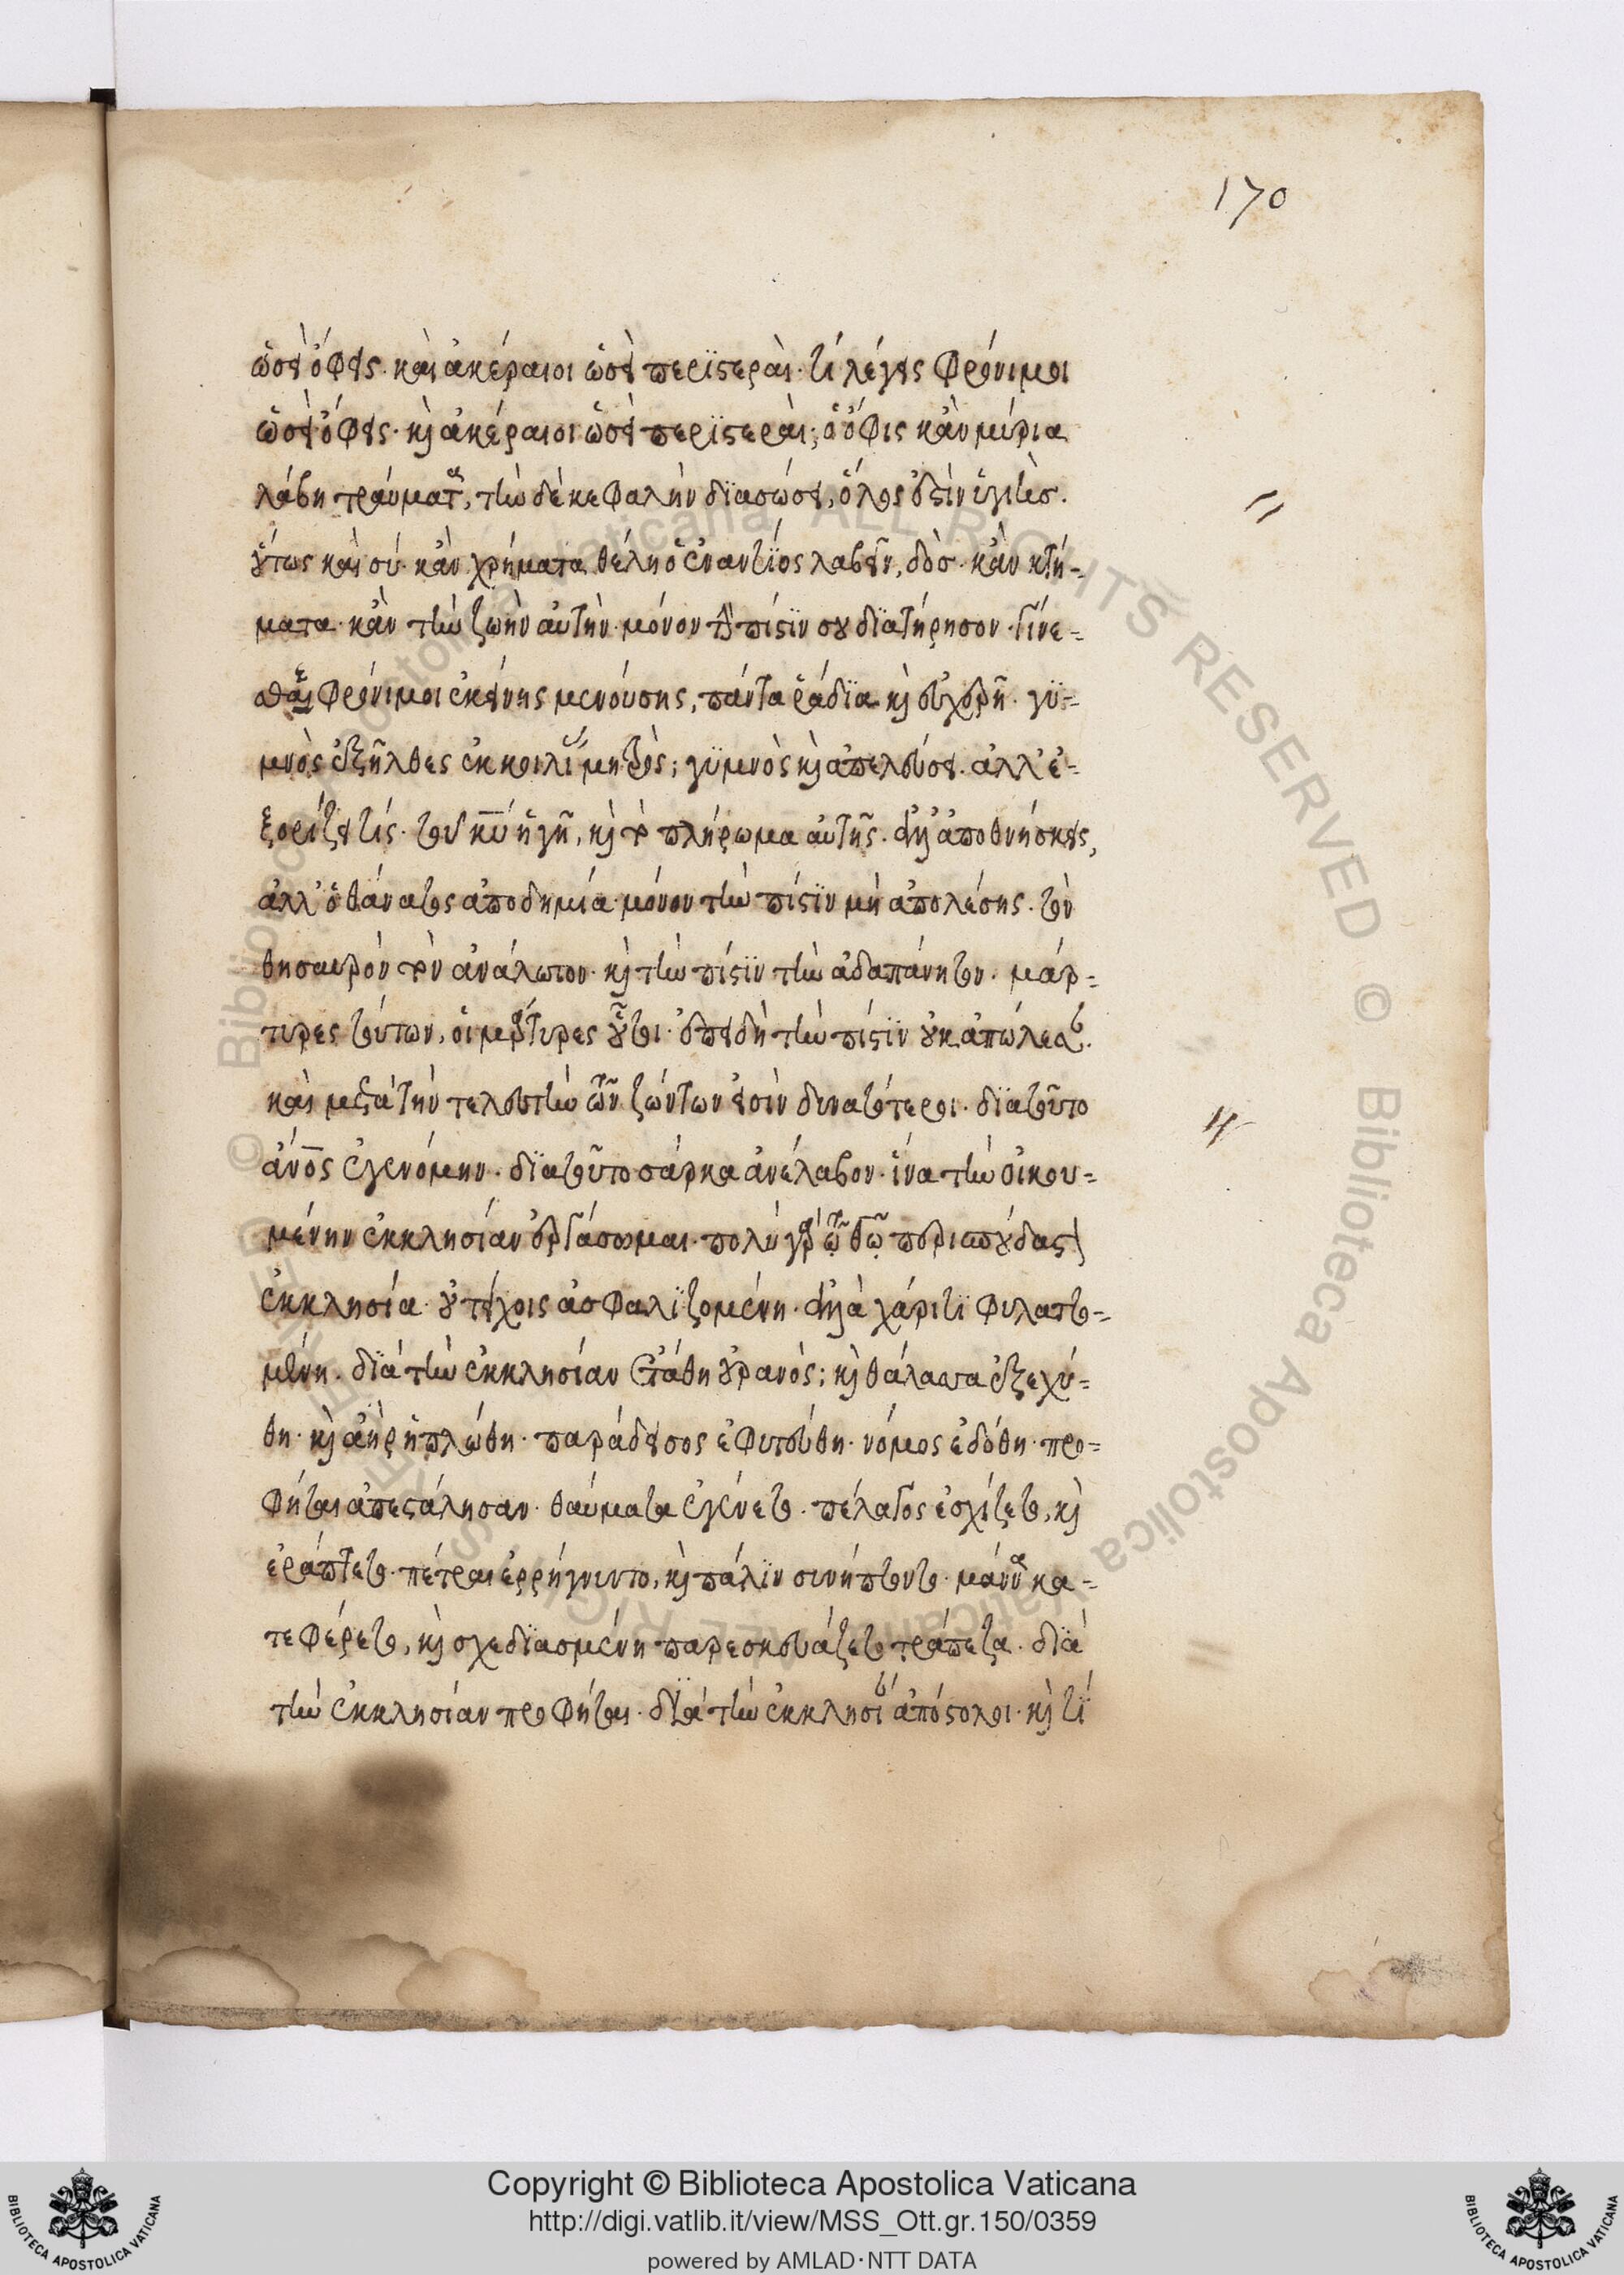 170
ὡσεὶ ὄφεις· καὶ ἀκέραιοι ὡσεὶ περϊστεραὶ· τί λέγεις φρόνιμοι
ὡσεὶ ὄφεις· κὶ ἀκέραιοι ὡσεὶ περϊστεραὶ; ὁ ὄφις κἂν μύρια
λάβη τραύματα, τὴν δὲ κεφαλὴν δϊασώσει, ὅλος ἐστὶν ὑγιὴσ.
οὕτως καὶ σύ· κἂν χρήματα θέλη ὁ ἐναντίος λαβεῖν, δὸσ· κἂν κτή-
ματα· κἂν τὴν ζωὴν αὐτὴν· μόνον τὴν πίστϊν σου δϊατήρησον· γίνε-
σθαι φρόνιμοι ἐκείνης μενούσης, πάντα ῥάδϊα κὶ εὐχερῆ· γϋ-
μνὸς ἐξῆλθες ἐκ κοιλίας μητρὸς; γϋμνὸς κὶ ἀπελεύσει· ἀλλ' ἐ-
ξορίζει τίς· τοῦ κ̅υ̅ ἡ γῆ, κὶ τὸ πλήρωμα αὐτῆς· ἀλλ' ἀποθνήσκεις,
ἀλλ' ὁ θάνατος ἀποδημία· μόνον τὴν πίστϊν μὴ ἀπολέσης· τὸν
θησαυρὸν τὸν ἀνάλωτον· κὶ τὴν πίστϊν τὴν ἀδαπάνητον· μάρ-
τυρες τούτων, οἱ μάρτυρες οὗτοι· ἐπειδὴ τὴν πίστϊν οὐκ ἀπώλεσαν.
καὶ μετὰ τὴν τελευτὴν τῶν ζώντων εἰσὶν δυνατότεροι· δϊατοῦτο
ἄν̅ο̅ς ἐγενόμην· δϊατοῦτο σάρκα ἀνέλαβον· ἵνα τὴν οἰκου-
μένην ἐκκλησίαν ἐργάσωμαι· πολὺ γὰρ τῶ θῶ περισπούδαστ
ἐκκλησία· οὐ τείχοις ἀσφαλϊζομένη· ἀλλὰ χάριτϊ φυλαττο-
μένη· δϊὰ τὴν ἐκκλησίαν ἐτάθη οὐρανός; κὶ θάλασσα ἐξεχύ-
θη· κὶ ἀὴρ ἡπλώθη· παράδεισος ἐφυτεύθη· νόμος ἐδόθη· προ-
φῆται ἀπεστάλησαν· θαύματα ἐγένετο· πέλαγος ἐσχίζετο, κὶ
ἐράπτετο· πέτραι ἐρρήγνυντο, κὶ πάλϊν συνήπτοντο· μάννα κα-
τεφέρετο, κὶ σχεδϊασμένη παρεσκευάζετο τράπεζα· δϊὰ
τὴν ἐκκλησίαν προφῆται· δϊὰ τὴν ἐκκλησίαν ἀπόστολοι· κὶ τί
Copyright © Biblioteca Apostolica Vaticana
http://digi.vatlib.it/view/MSS_Ott.gr.150/0359
powered by AMLAD·NTT DATA